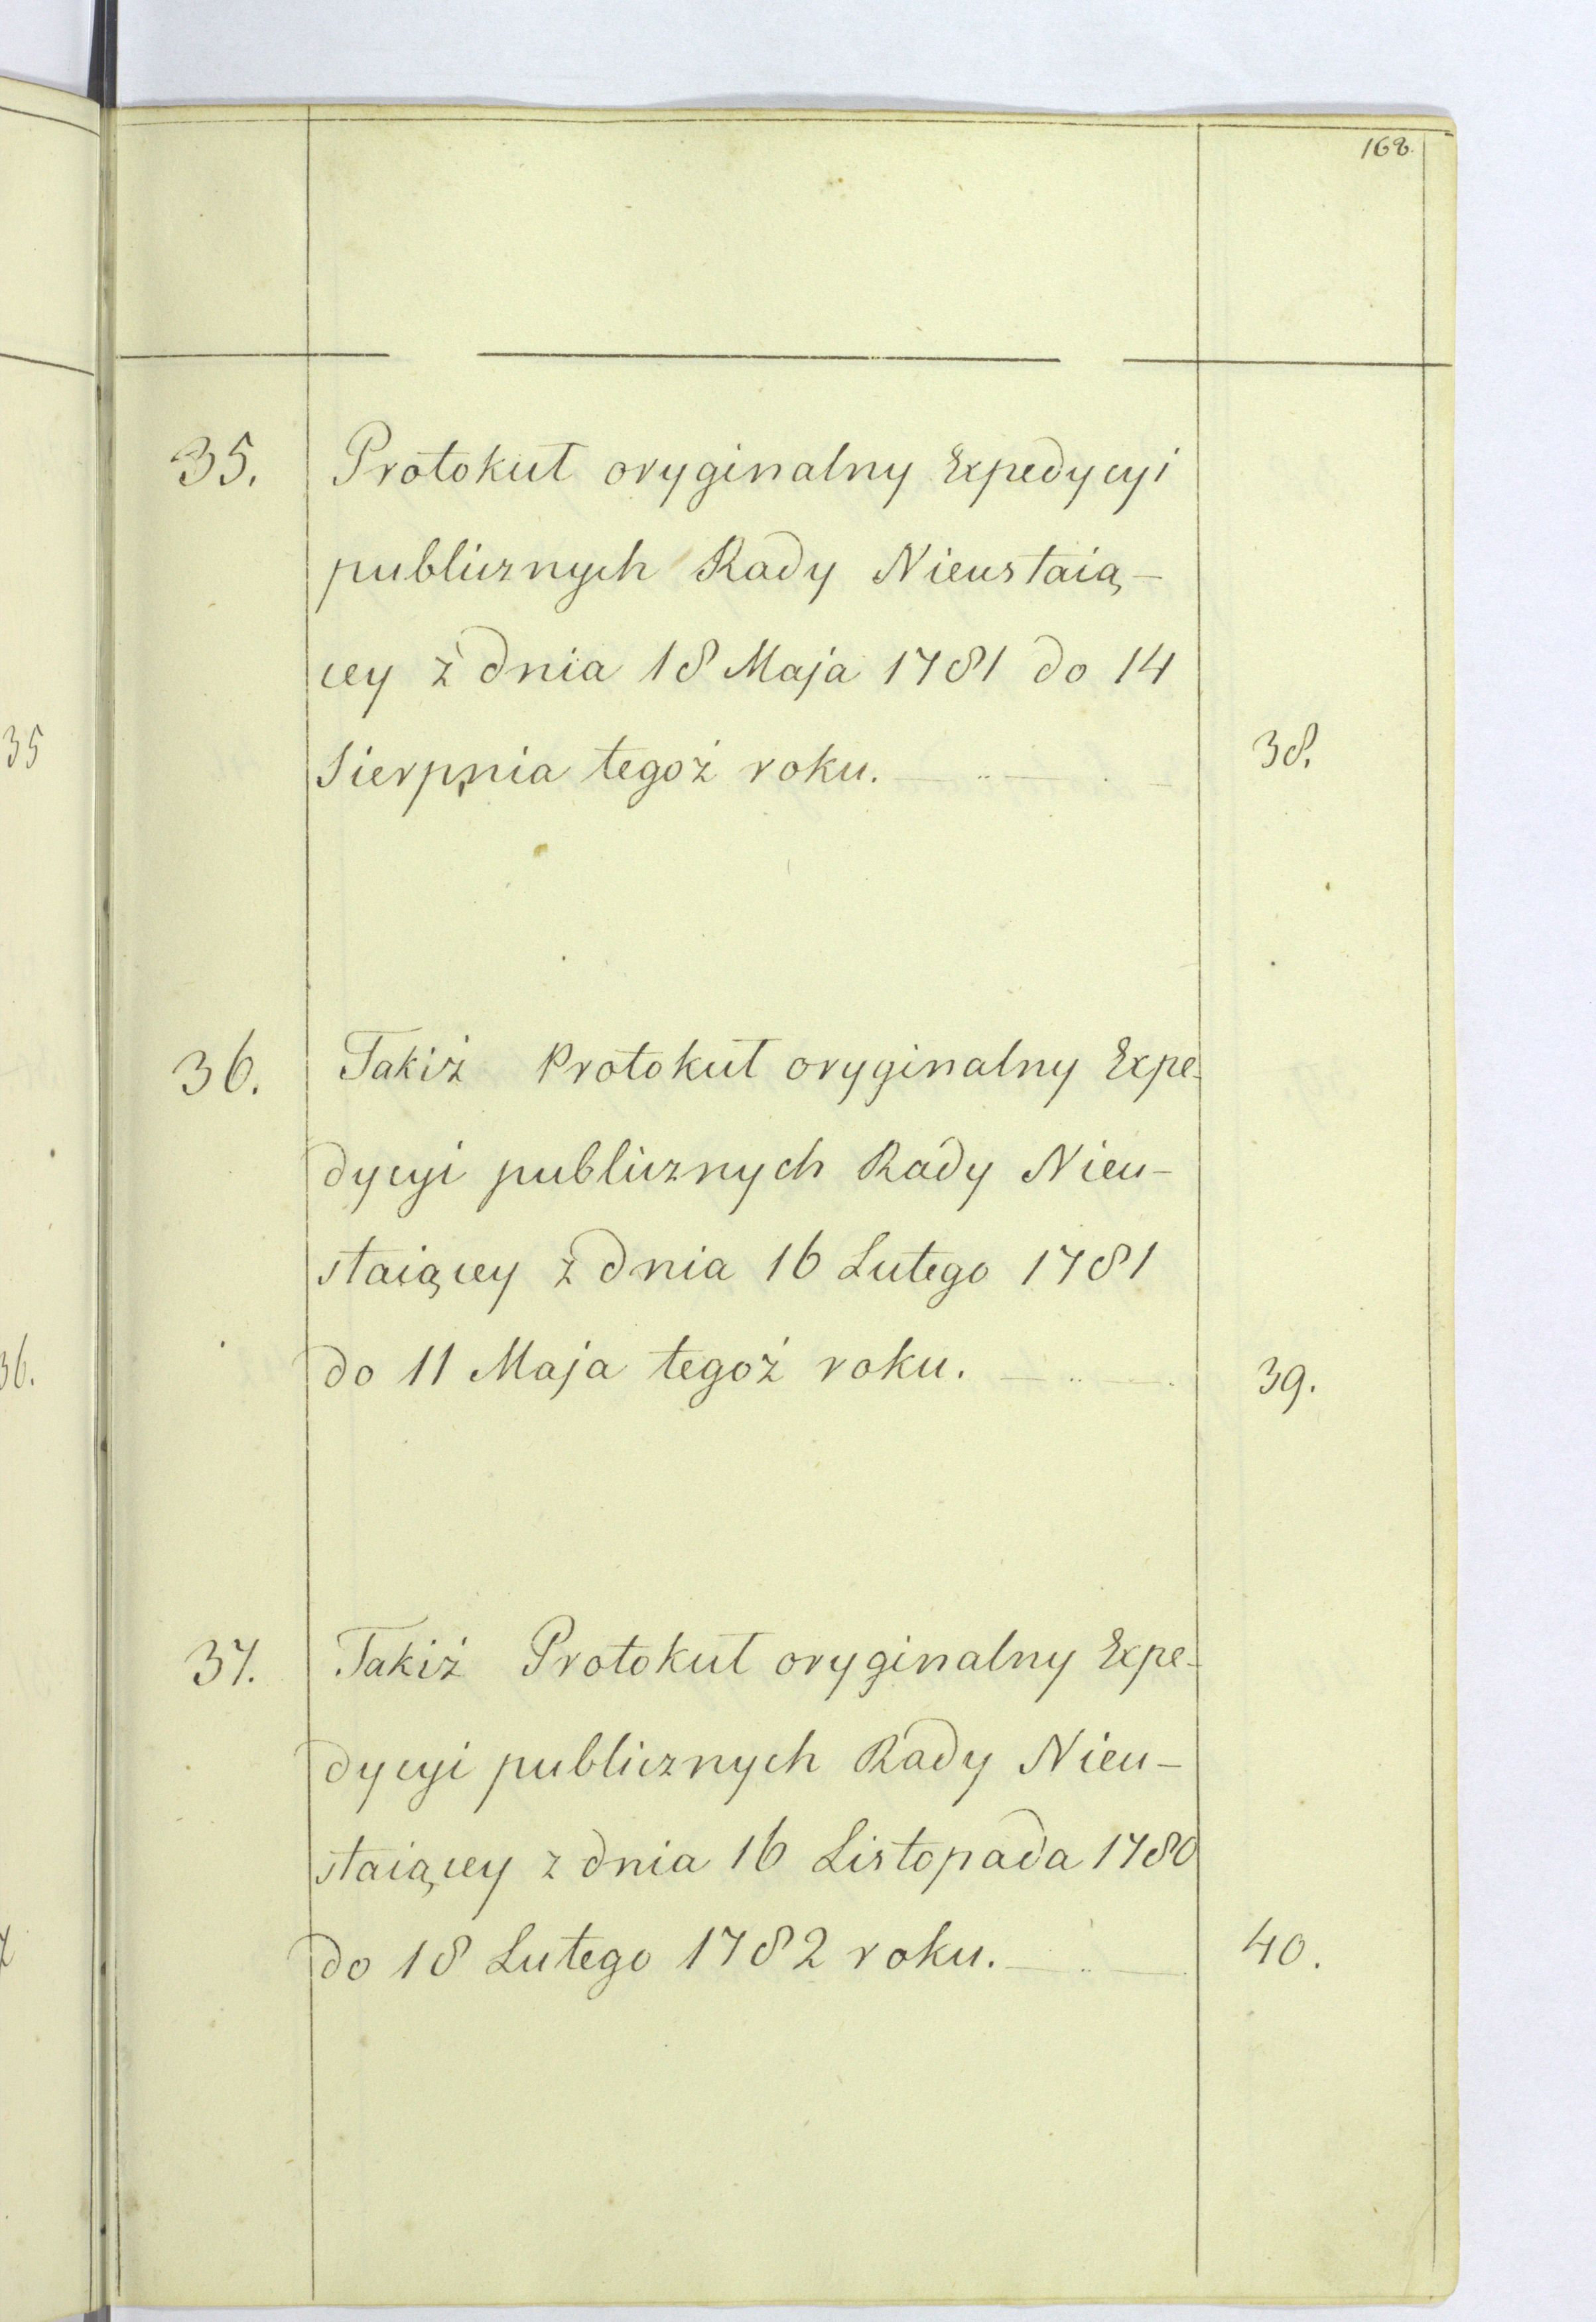 168.
35. Protokuł oryginalny Expedycyi
publicznych Rady Nieustaią-
cey z dnia 18 Maja 1781 do 14
Sierpnia tegoż roku. 38.
36. Takiż Protokuł oryginalny Expe-
dycyi publicznych Rady Nieu-
staiącey z dnia 16 Lutego 1781
do 11 Maja tegoż roku. 39.
37. Takiż Protokuł oryginalny Expe-
dycyi publicznych Rady Nieu-
staiącey z dnia 16 Listopada 1780
do 18 Lutego 1782 roku. 40.
35
36.